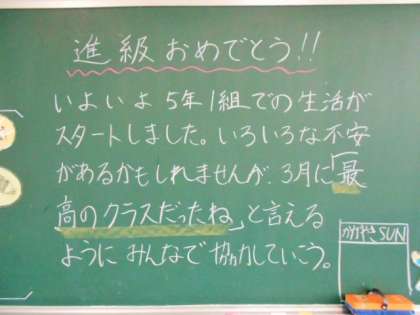 進級おめでとう!!
いよいよ5年1組での生活が
スタートしました。いろいろな不安
があるかもしれませんが、3月に「最
高のクラスだったね」と言える
ように みんなで協力していこう。
かがやきSUN